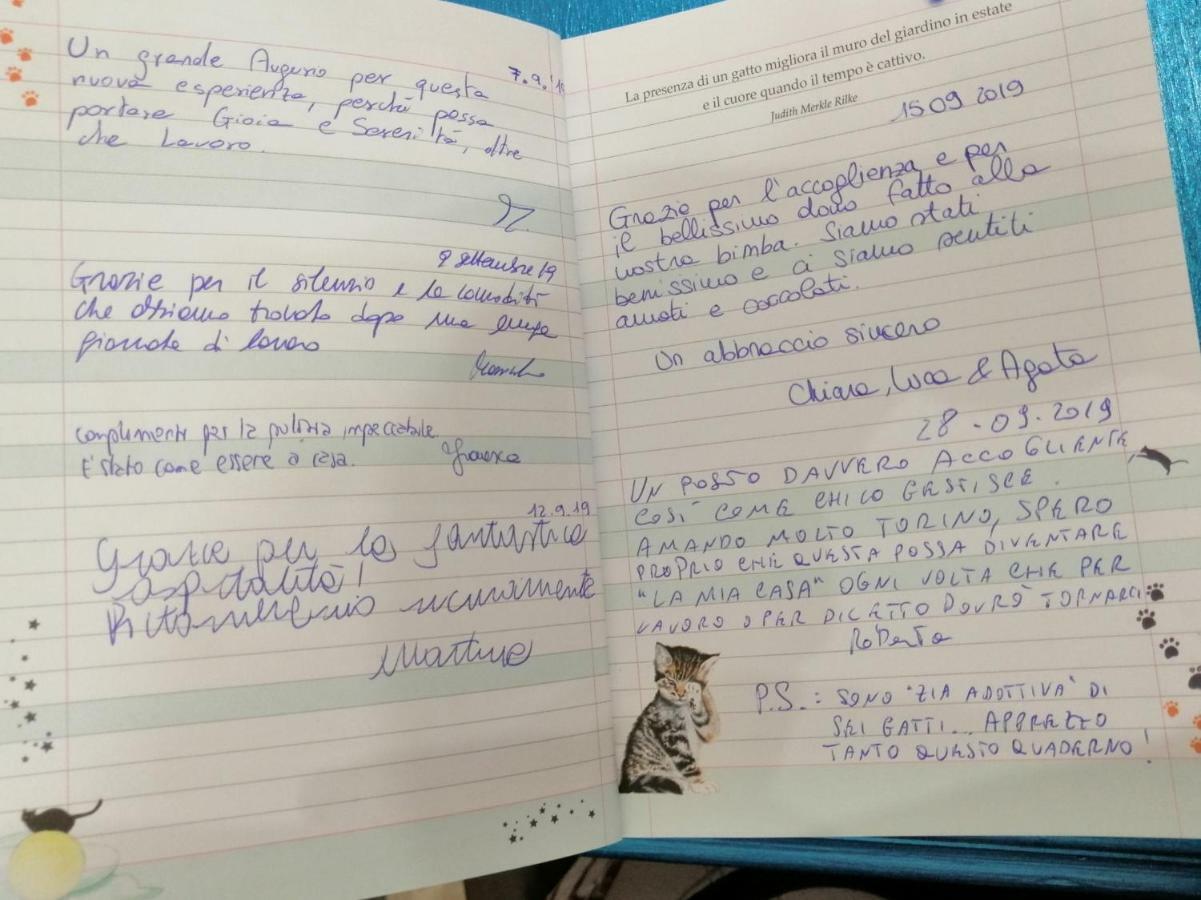 7.9.'1
Un grande Augurio per questa
nuova esperienza, perché possa
portare Gioia e Serenità, oltre
che Lavoro.
9 settembre 19
Grazie per il silenzio e la comodità
che abbiamo trovato dopo una lunga
giornata di lavoro
Complimenti per la pulizia impeccabile.
È stato come essere a casa.
12.9.19
Grazie per la fantastica
ospitalità!
Ritorneremo sicuramente
Martina
La presenza di un gatto migliora il muro del giardino in estate
e il cuore quando il tempo è cattivo.
Judith Merkle Rilke
15 09 2019
Grazie per l'accoglienza e per
il bellissimo dono fatto alla
nostra bimba. Siamo stati
benissimo e ci siamo sentiti
amati e coccolati.
Un abbraccio sincero
Chiara, Luca & Agata
28-09-2019
UN POSTO DAVVERO ACCOGLIENTE,
COSÌ COME CHI LO GESTISCE.
AMANDO MOLTO TORINO, SPERO
PROPRIO CHE QUESTA POSSA DIVENTARE
"LA MIA CASA" OGNI VOLTA CHE PER
LAVORO O PER DILETTO DOVRÒ TORNARCI.
Roberta
P.S.: SONO "ZIA ADOTTIVA" DI
SEI GATTI... APPREZZO
TANTO QUESTO QUADERNO!